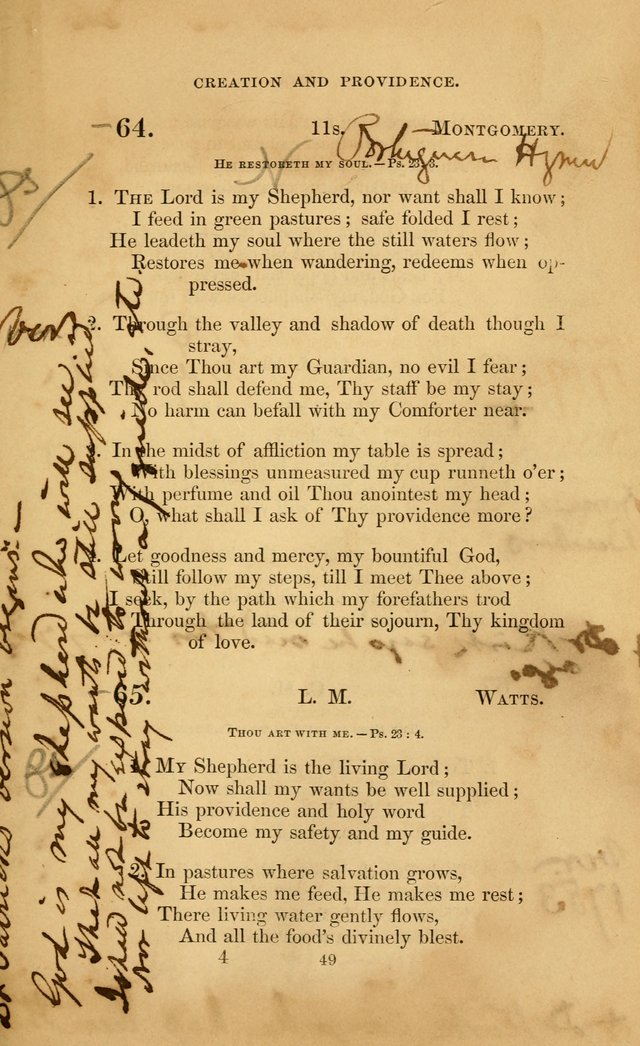 CREATION AND PROVIDENCE.
64. 11s. MONTGOMERY.
Portuguese Hymn
HE RESTORETH MY SOUL. — PS. 23: 3.
1. THE Lord is my Shepherd, nor want shall I know;
I feed in green pastures; safe folded I rest;
He leadeth my soul where the still waters flow;
Restores me when wandering, redeems when op-
pressed.
2. Through the valley and shadow of death though I
stray,
Since Thou art my Guardian, no evil I fear;
Thy rod shall defend me, Thy staff be my stay;
No harm can befall with my Comforter near.
3. In the midst of affliction my table is spread;
With blessings unmeasured my cup runneth o'er;
With perfume and oil Thou anointest my head;
O, what shall I ask of Thy providence more?
4. Let goodness and mercy, my bountiful God,
Still follow my steps, till I meet Thee above;
I seek, by the path which my forefathers trod
Through the land of their sojourn, Thy kingdom
of love.
65. L. M. WATTS.
THOU ART WITH ME. — PS. 23: 4.
1. MY Shepherd is the living Lord;
Now shall my wants be well supplied;
His providence and holy word
Become my safety and my guide.
2. In pastures where salvation grows,
He makes me feed, He makes me rest;
There living water gently flows,
And all the food's divinely blest.
4 49
version begins: —
God is my Shepherd who will see
That all my wants be still supplied
I shd not be exposed to worry
Nor left to stray without a guide, etc.